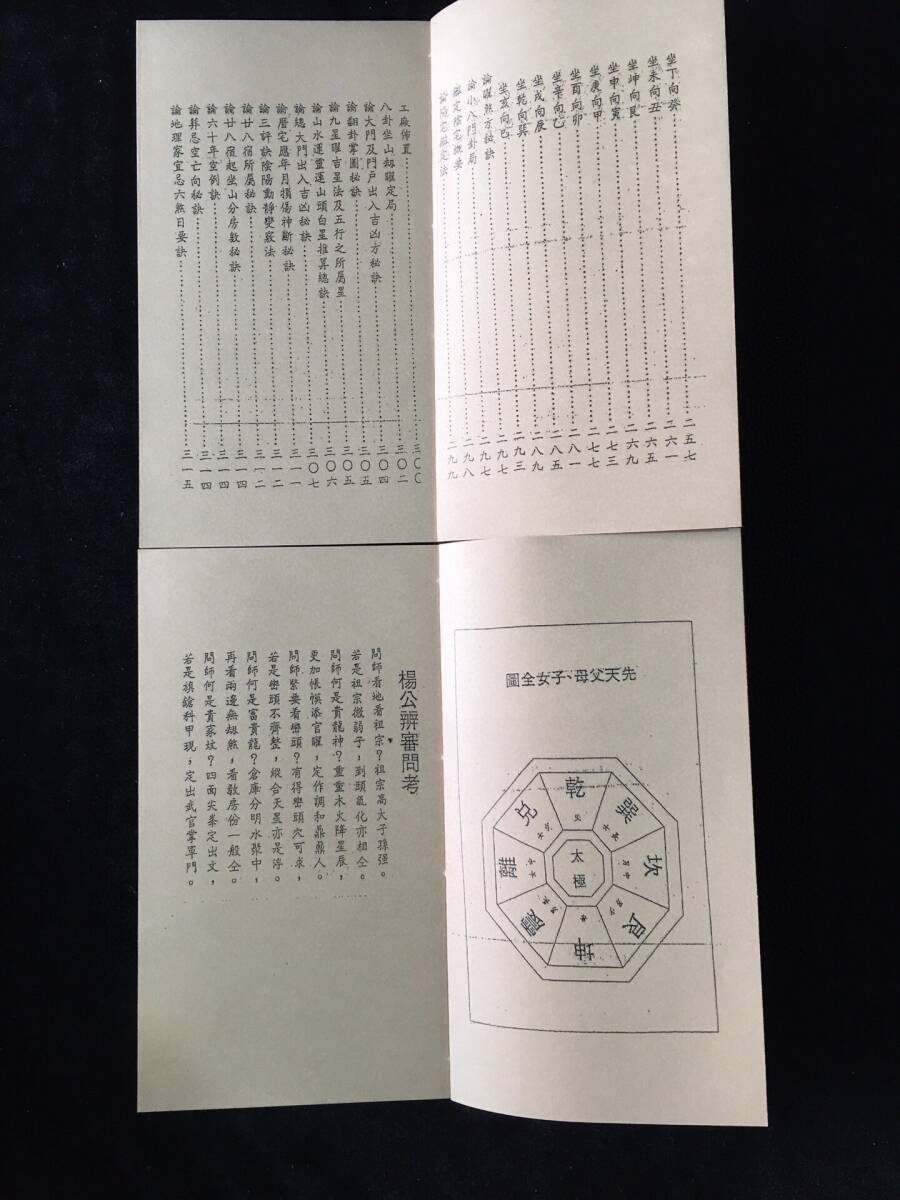 坐丁向癸……二五七
坐未向丑……二六一
坐坤向艮……二六五
坐申向寅……二六九
坐庚向甲……二七三
坐酉向卯……二七七
坐辛向乙……二八一
坐戌向辰……二八五
坐乾向巽……二八九
坐亥向巳……二九三
論曜煞方秘訣……二九七
論小八門卦局……二九七
鑑定陰宅概要……二九八
論陽宅鑑定法……二九九
工廠佈置……三〇〇
八卦坐山劫曜定局……三〇二
論大門及門戶出入吉凶方秘訣……三〇四
論翻卦掌圖秘訣……三〇五
論九星曜吉星法及五行之所屬星……三〇五
論山水運靈運山頭白星推算總訣……三〇六
論總大門出入吉凶秘訣……三〇七
論曆宅應年月損傷神斷秘訣……三一一
論三評訣陰陽動靜變竅法……三一二
論廿八宿所屬秘訣……三一二
論廿八宿起坐山分房數秘訣……三一四
論六十年空例訣……三一四
論葬忌空亡向秘訣……三一四
論地理家宜忌六煞日要訣……三一五
圖全女子、母父天先
乾
父
巽
長女
坎
中男
艮
少男
坤
母
震
長男
離
中女
兌
少女
太極
楊公辨審問考
問師看地看祖宗?祖宗高大子孫强。
若是祖宗微弱子,到頭氣化亦相仝。
問師何是貴龍神?重重木火降星辰,
更加帳幙添官曜,定作調和鼎鼐人。
問師緊要看巒頭?有得巒頭穴可求,
若是巒頭不齊整,縱合天星亦是浮。
問師何是富貴龍?倉庫分明水聚中,
再看兩邊無刼煞,看敎房份一般仝。
問師何是貴家坟?四面尖峯定出文,
若是旗鎗科甲現,定出武官掌專門。